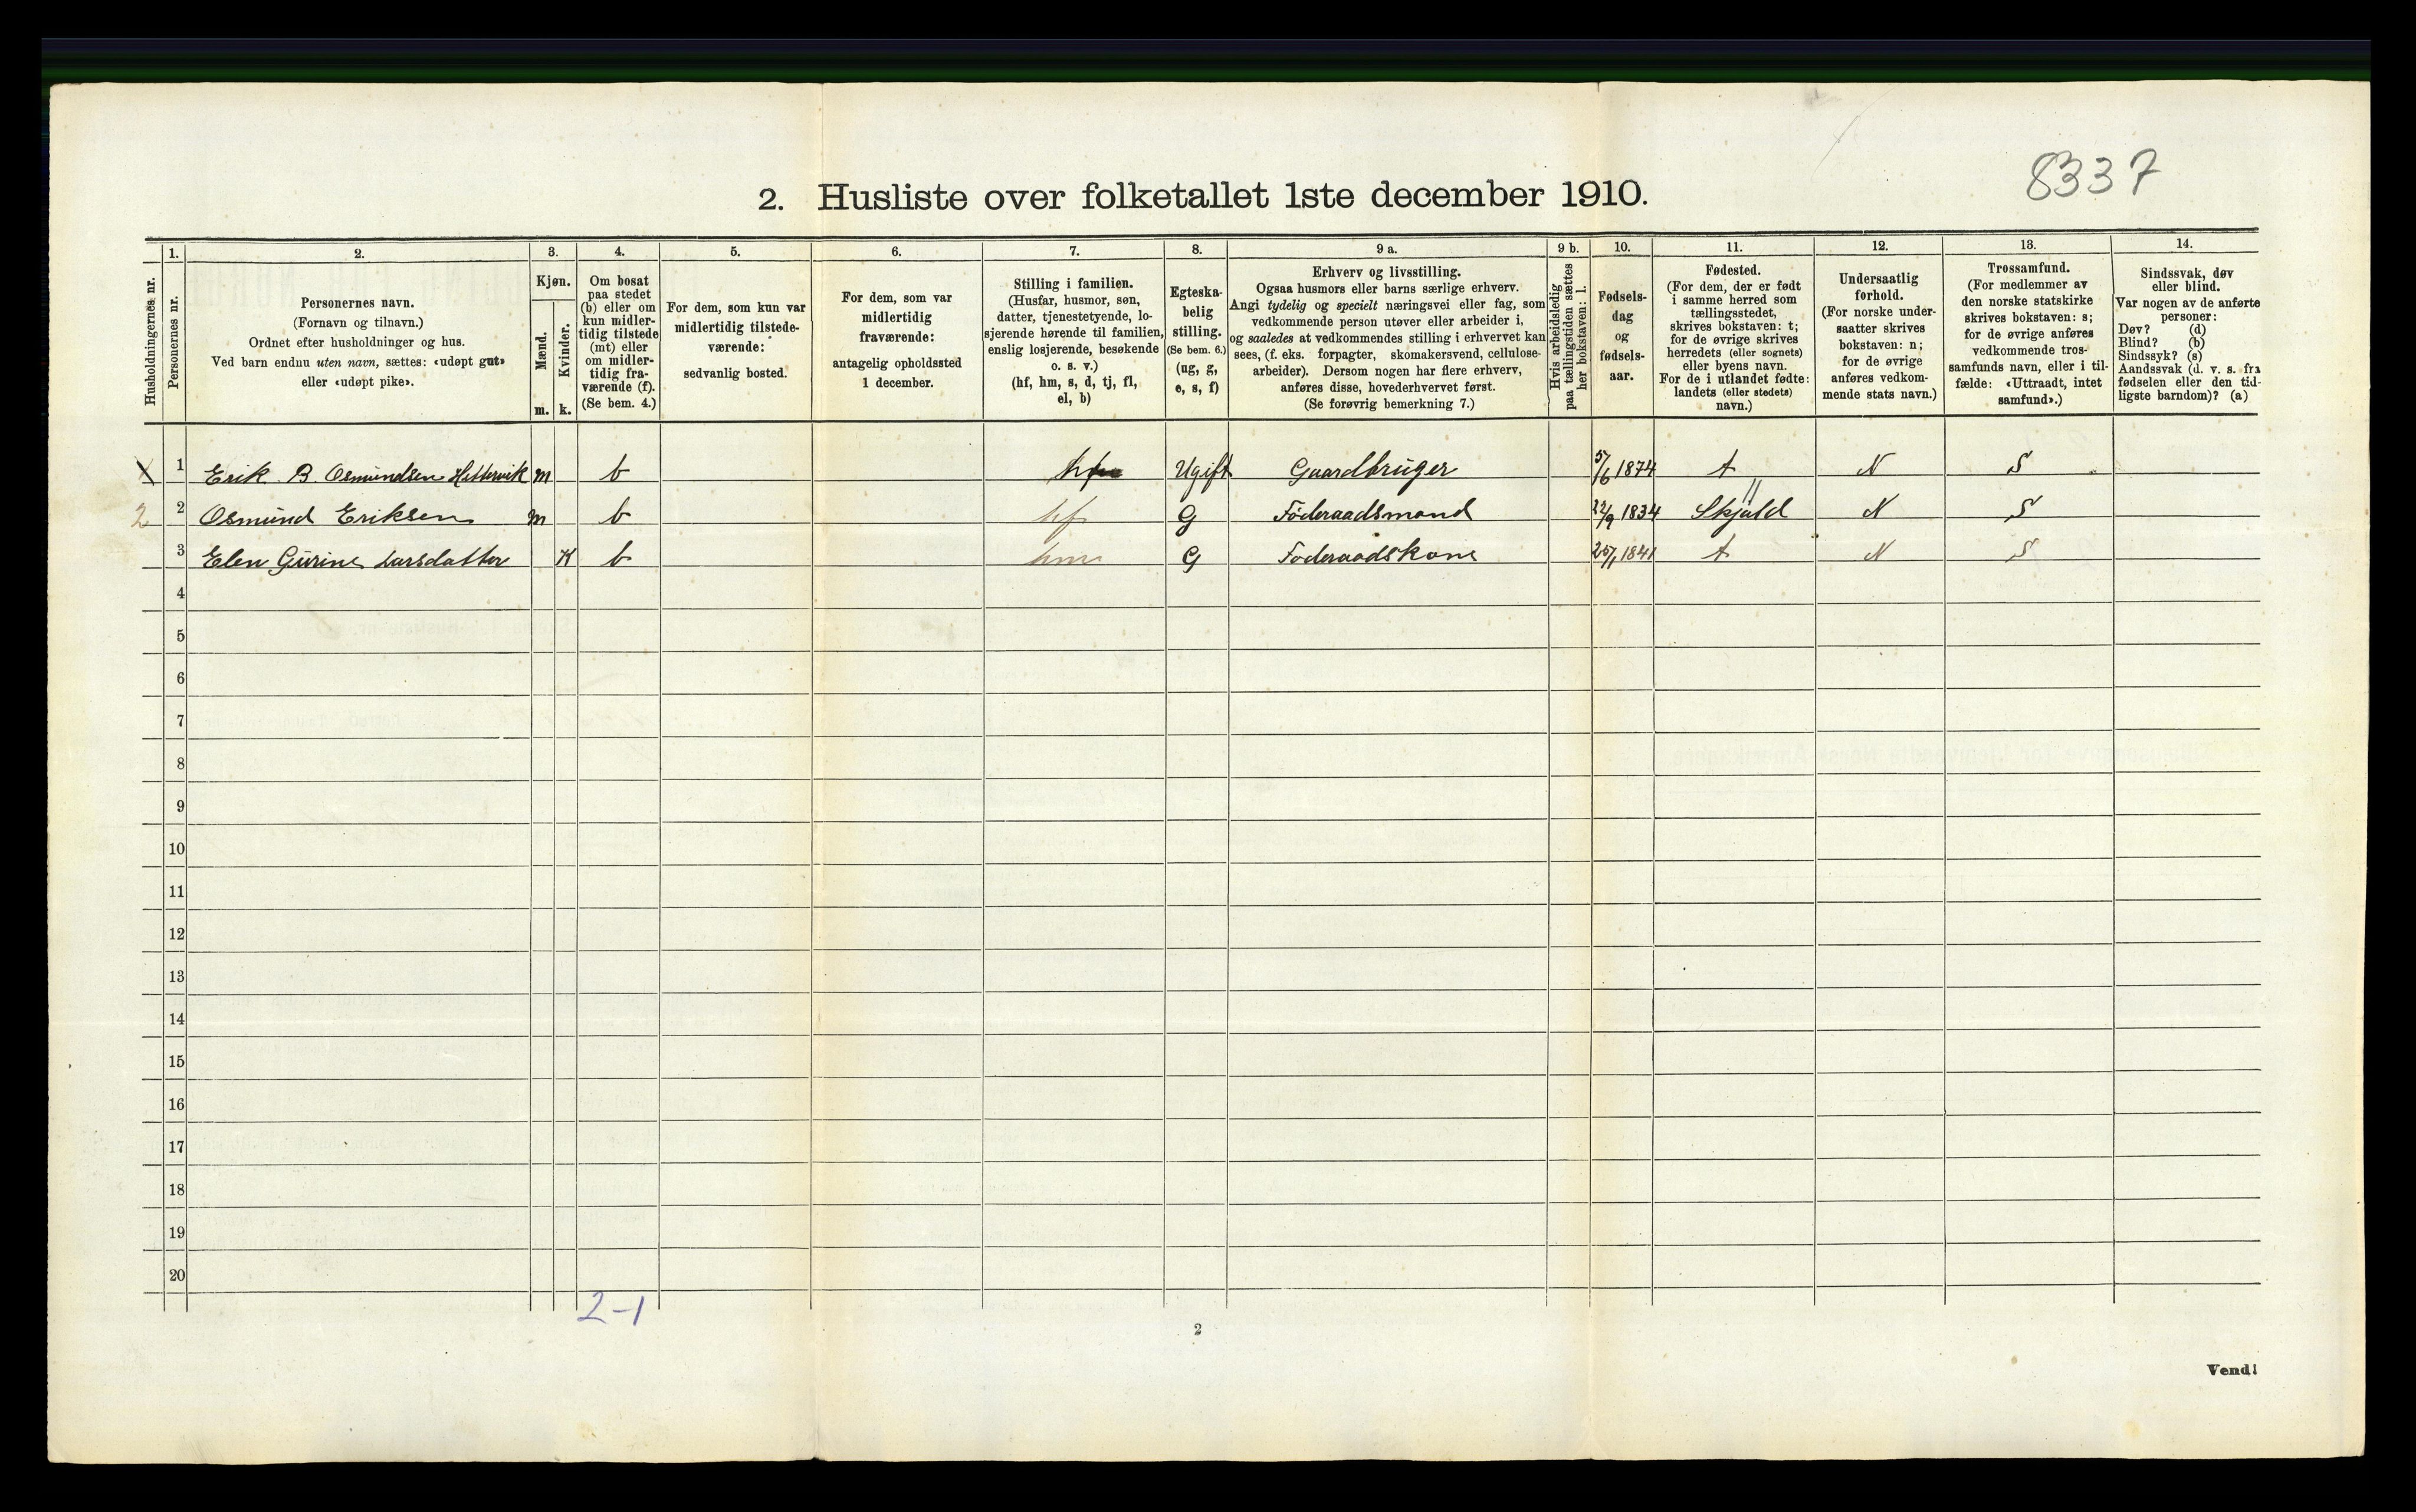 8337
2. Husliste over folketallet 1ste december 1910.
Husholdningernes nr.
1.
Personernes nr.
2.
Personernes navn.
(Fornavn og tilnavn.)
Ordnet efter husholdninger og hus.
Ved barn endnu uten navn, sættes: «udøpt gut»
eller «udøpt pike».
3.
Kjøn.
Mænd.
Kvinder.
m. k.
4.
Om bosat
paa stedet
(b) eller om
kun midler-
tidig tilstede
(mt) eller
om midler-
tidig fra-
værende (f).
(Se bem. 4.)
5.
For dem, som kun var
midlertidig tilstede-
værende:
sedvanlig bosted.
6.
For dem, som var
midlertidig
fraværende:
antagelig opholdssted
1 december.
7.
Stilling i familien.
(Husfar, husmor, søn,
datter, tjenestetyende, lo-
sjerende hørende til familien,
enslig losjerende, besøkende
o. s. v.)
(hf, hm, s, d, tj, fl,
el, b)
8.
Egteska-
belig
stilling.
(Se bem. 6.)
(ug, g,
e, s, f)
9 a.
Erhverv og livsstilling.
Ogsaa husmors eller barns særlige erhverv.
Angi tydelig og specielt næringsvei eller fag, som
vedkommende person utøver eller arbeider i,
og saaledes at vedkommendes stilling i erhvervet kan
sees, (f. eks. forpagter, skomakersvend, cellulose-
arbeider). Dersom nogen har flere erhverv,
anføres disse, hovederhvervet først.
(Se forøvrig bemerkning 7.)
9 b.
Hvis arbeidsledig
paa tællingstiden sættes
her bokstaven: l.
10.
Fødsels-
dag
og
fødsels-
aar.
11.
Fødested.
(For dem, der er født
i samme herred som
tællingsstedet,
skrives bokstaven: t;
for de øvrige skrives
herredets (eller sognets)
eller byens navn.
For de i utlandet fødte:
landets (eller stedets)
navn.)
12.
Undersaatlig
forhold.
(For norske under-
saatter skrives
bokstaven: n;
for de øvrige
anføres vedkom-
mende stats navn.)
13.
Trossamfund.
(For medlemmer av
den norske statskirke
skrives bokstaven: s;
for de øvrige anføres
vedkommende tros-
samfunds navn, eller i til-
fælde: «Uttraadt, intet
samfund».)
14.
Sindssvak, døv
eller blind.
Var nogen av de anførte
personer:
Døv? (d)
Blind? (b)
Sindssyk? (s)
Aandssvak (d. v. s. fra
fødselen eller den tid-
ligste barndom)? (a)
1 Erik B. Osmundsen Hettervik m b Ugift Gaardbruger 5/6 1874 t N S
2 2 Osmund Eriksen m b hf G Föderaadsmand 22/9 1834 Skjold N S
3 Elen Gurine Larsdatter K b hm G Föderaadskone 25/1 1841 t N S
4
5
6
7
8
9
10
11
12
13
14
15
16
17
18
19
20
2-1
2
Vend!